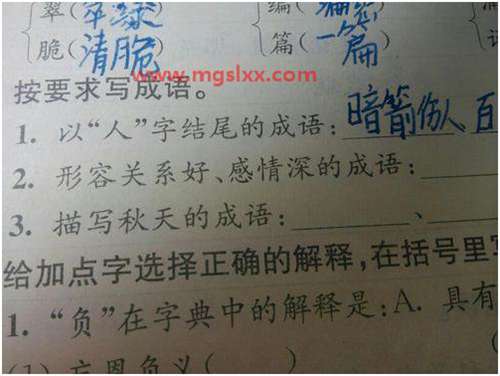 翠(翠绿
脆(清脆)
编(
篇(一篇
www.mgslxx.com
按要求写成语。
1. 以“人”字结尾的成语:暗箭伤人 百
2. 形容关系好、感情深的成语:
3. 描写秋天的成语: 、
给加点字选择正确的解释,在括号里写
1. “负”在字典中的解释是:A. 具有
(1) 忘恩负义( )